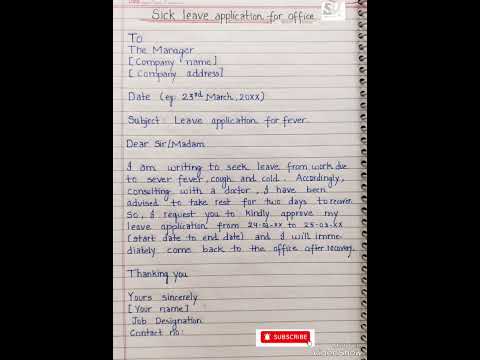 Sick leave application for office
To
The Manager
[Company name]
[Company address]
Date (eg: 23rd March, 20XX)
Subject: Leave application for fever.
Dear Sir/Madam
I am writing to seek leave from work due
to sever fever, cough and cold. Accordingly,
consulting with a doctor, I have been
advised to take rest for two days to recover.
So, I request you to kindly approve my
leave application from 24-03-XX to 25-03-XX
(start date to end date) and I will imme-
diately come back to the office after recovery.
Thanking you
Yours sincerely
[Your name]
Job Designation
Contact no:
SUBSCRIBE